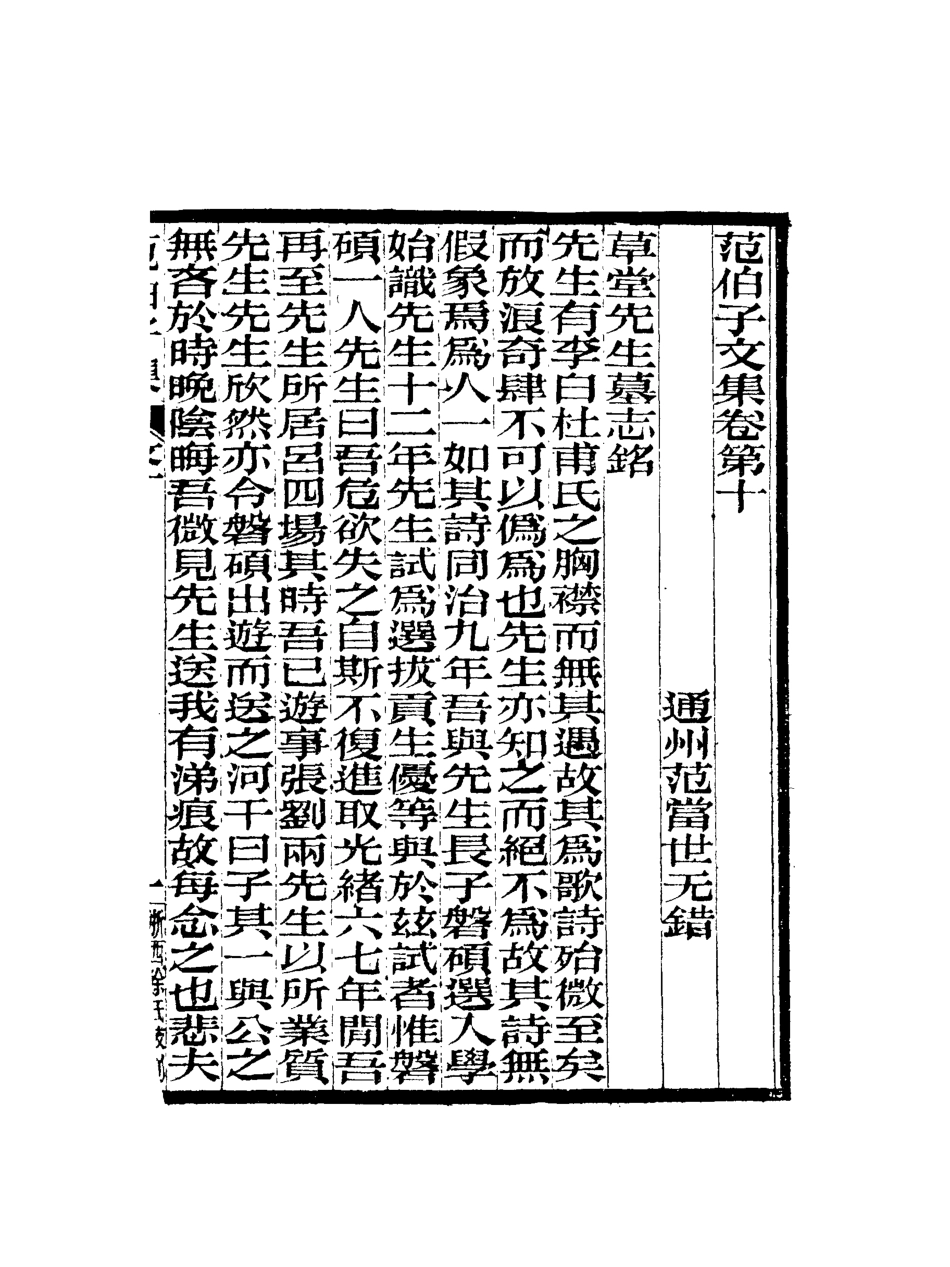 范伯子文集卷第十
通州范當世无錯
草堂先生墓志銘
先生有李白杜甫氏之胸襟而無其遇故其爲歌詩殆微至矣
而放浪奇肆不可以僞爲也先生亦知之而絕不爲故其詩無
假象焉爲人一如其詩同治九年吾與先生長子磐碩選入學
始識先生十二年先生試爲選拔貢生優等與於茲試者惟磐
碩一人先生曰吾危欲失之自斯不復進取光緒六七年閒吾
再至先生所居呂四場其時吾已遊事張劉兩先生以所業質
先生先生欣然亦令磐碩出遊而送之河干曰子其一與公之
無吝於時晚陰晦吾微見先生送我有涕痕故每念之也悲夫